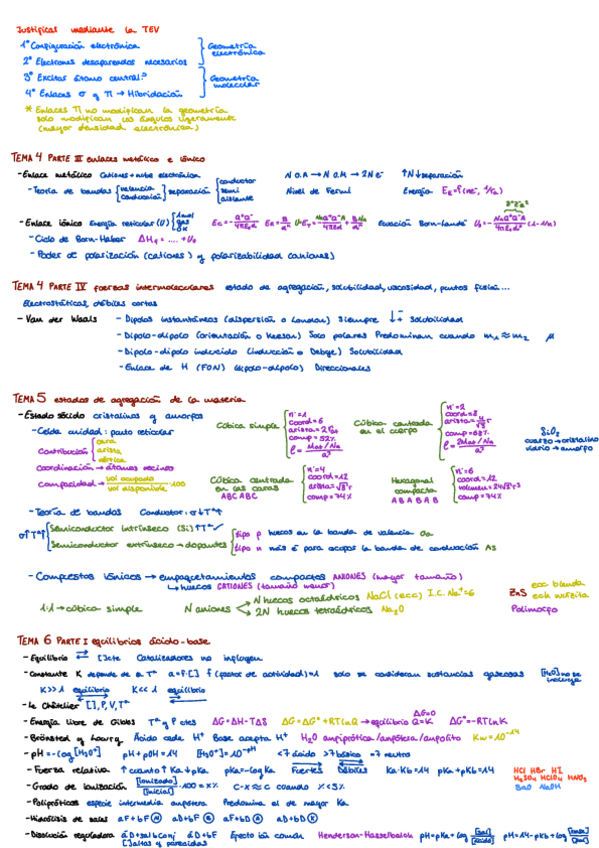 Justificar mediante la TEV
1º Configuración electrónica
2º Electrones desapareados necesarios
Geometría electrónica
3º Excitar átomo central?
4º Enlaces σ y π → Hibridación
Geometría molecular
* Enlaces π no modifican la geometría
solo modifican los ángulos ligeramente
(mayor densidad electrónica)
TEMA 4 PARTE III enlaces metálico e iónico
- Enlace metálico Cationes + nube electrónica N O.A → N O.M → 2N e⁻ ↑N ↓separación
- Teoría de bandas { valencia conducción } separación { conductor semi aislante Nivel de Fermi Energía
- Enlace iónico Energía reticular (U) { 1 mol gas Ecuación Born-Landé
- Ciclo de Born-Haber ΔHf = .... + U₀
- Poder de polarización (cationes) y polarizabilidad (aniones)
TEMA 4 PARTE IV fuerzas intermoleculares estado de agregación, solubilidad, viscosidad, puntos fusión...
Electrostáticas, débiles cortas
- Van der Waals - Dipolos instantáneos (dispersión o London) Siempre Solubilidad
- Dipolo-dipolo (orientación o Keesom) Solo polares Predominan cuando m₁ ≈ m₂ μ
- Dipolo-dipolo inducido (inducción o Debye) Solubilidad
- Enlace de H (FON) (dipolo-dipolo) Direccionales
TEMA 5 estados de agregación de la materia
- Estado sólido cristalinos y amorfos
- Celda unidad: punto reticular
Contribución { cara arista vértice
Coordinación → átomos vecinos
Compacidad → vol ocupado / vol disponible · 100
Cúbica simple { nº=1 coord=6 comp=52%
Cúbica centrada en el cuerpo { nº=2 coord=8 comp=68%
SiO₂
cuarzo → cristalino
vidrio → amorfo
Cúbica centrada en las caras ABC ABC { nº=4 coord=12 comp=74%
Hexagonal compacta A B A B A B { nº=6 coord=12 comp=74%
- Teoría de bandas Conductor: σ↓T↑
Semiconductor intrínseco (Si) ↑T
Semiconductor extrínseco → dopantes { tipo p huecos en la banda de valencia Ga
tipo n más e⁻ para ocupar la banda de conducción As
- Compuestos iónicos → empaquetamientos compactos ANIONES (mayor tamaño)
↳ huecos CATIONES (tamaño menor)
1:1 → cúbica simple N aniones N huecos octaédricos NaCl (ccc) I.C. Na⁺=6
2N huecos tetraédricos Na₂O
ZnS ecc blenda
ech wurzita
Polimorfo
TEMA 6 PARTE I equilibrios ácido-base
- Equilibrio ⇌ []cte Catalizadores no influyen
- Constante K depende de a Tª a=f·[] f (factor de actividad)=1 solo se consideran sustancias gaseosas [H₂O] no se
K>>1 equilibrio K<<1 equilibrio
- Le Châtelier [], P, V, Tª
- Energía libre de Gibbs Tª y P ctes ΔG=ΔH-TΔS ΔG=ΔGº+RTlnQ → equilibrio Q=K ΔG=0 ΔGº=-RTlnK
- Brönsted y Lowry Ácido cede H⁺ Base acepta H⁺ H₂O anfiprótica/anfótera/anfolito Kw=10⁻¹⁴
- pH=-log[H₃O⁺] pH+pOH=14 [H₃O⁺]=10⁻ᵖᴴ <7 ácido >7 básico =7 neutro
- Fuerza relativa ↑cuanto ↑Ka ↓pKa pKa=-logKa Fuertes Débiles Ka·Kb=14 pKa+pKb=14 HCl HBr HI
H₂SO₄ HClO₄ HNO₃
- Grado de ionización [ionizado]/[inicial]·100=x% C-x≈C cuando x<5% BaO NaOH
- Polipróticas especie intermedia anfótera Predomina el de mayor Ka
- Hidrólisis de sales aF+bF Ⓝ aD+bF Ⓑ aF+bD Ⓐ aD+bD Ⓚ
- Disolución reguladora aD+sal b conj aD+bF Efecto ion común Henderson-Hasselbalch pH=pKa+log [sal]/[ácido] pH=14-pKb+log [base]/[sal]
[]altas y parecidas